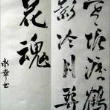 寒塘渡鶴
影冷月葬
花魂